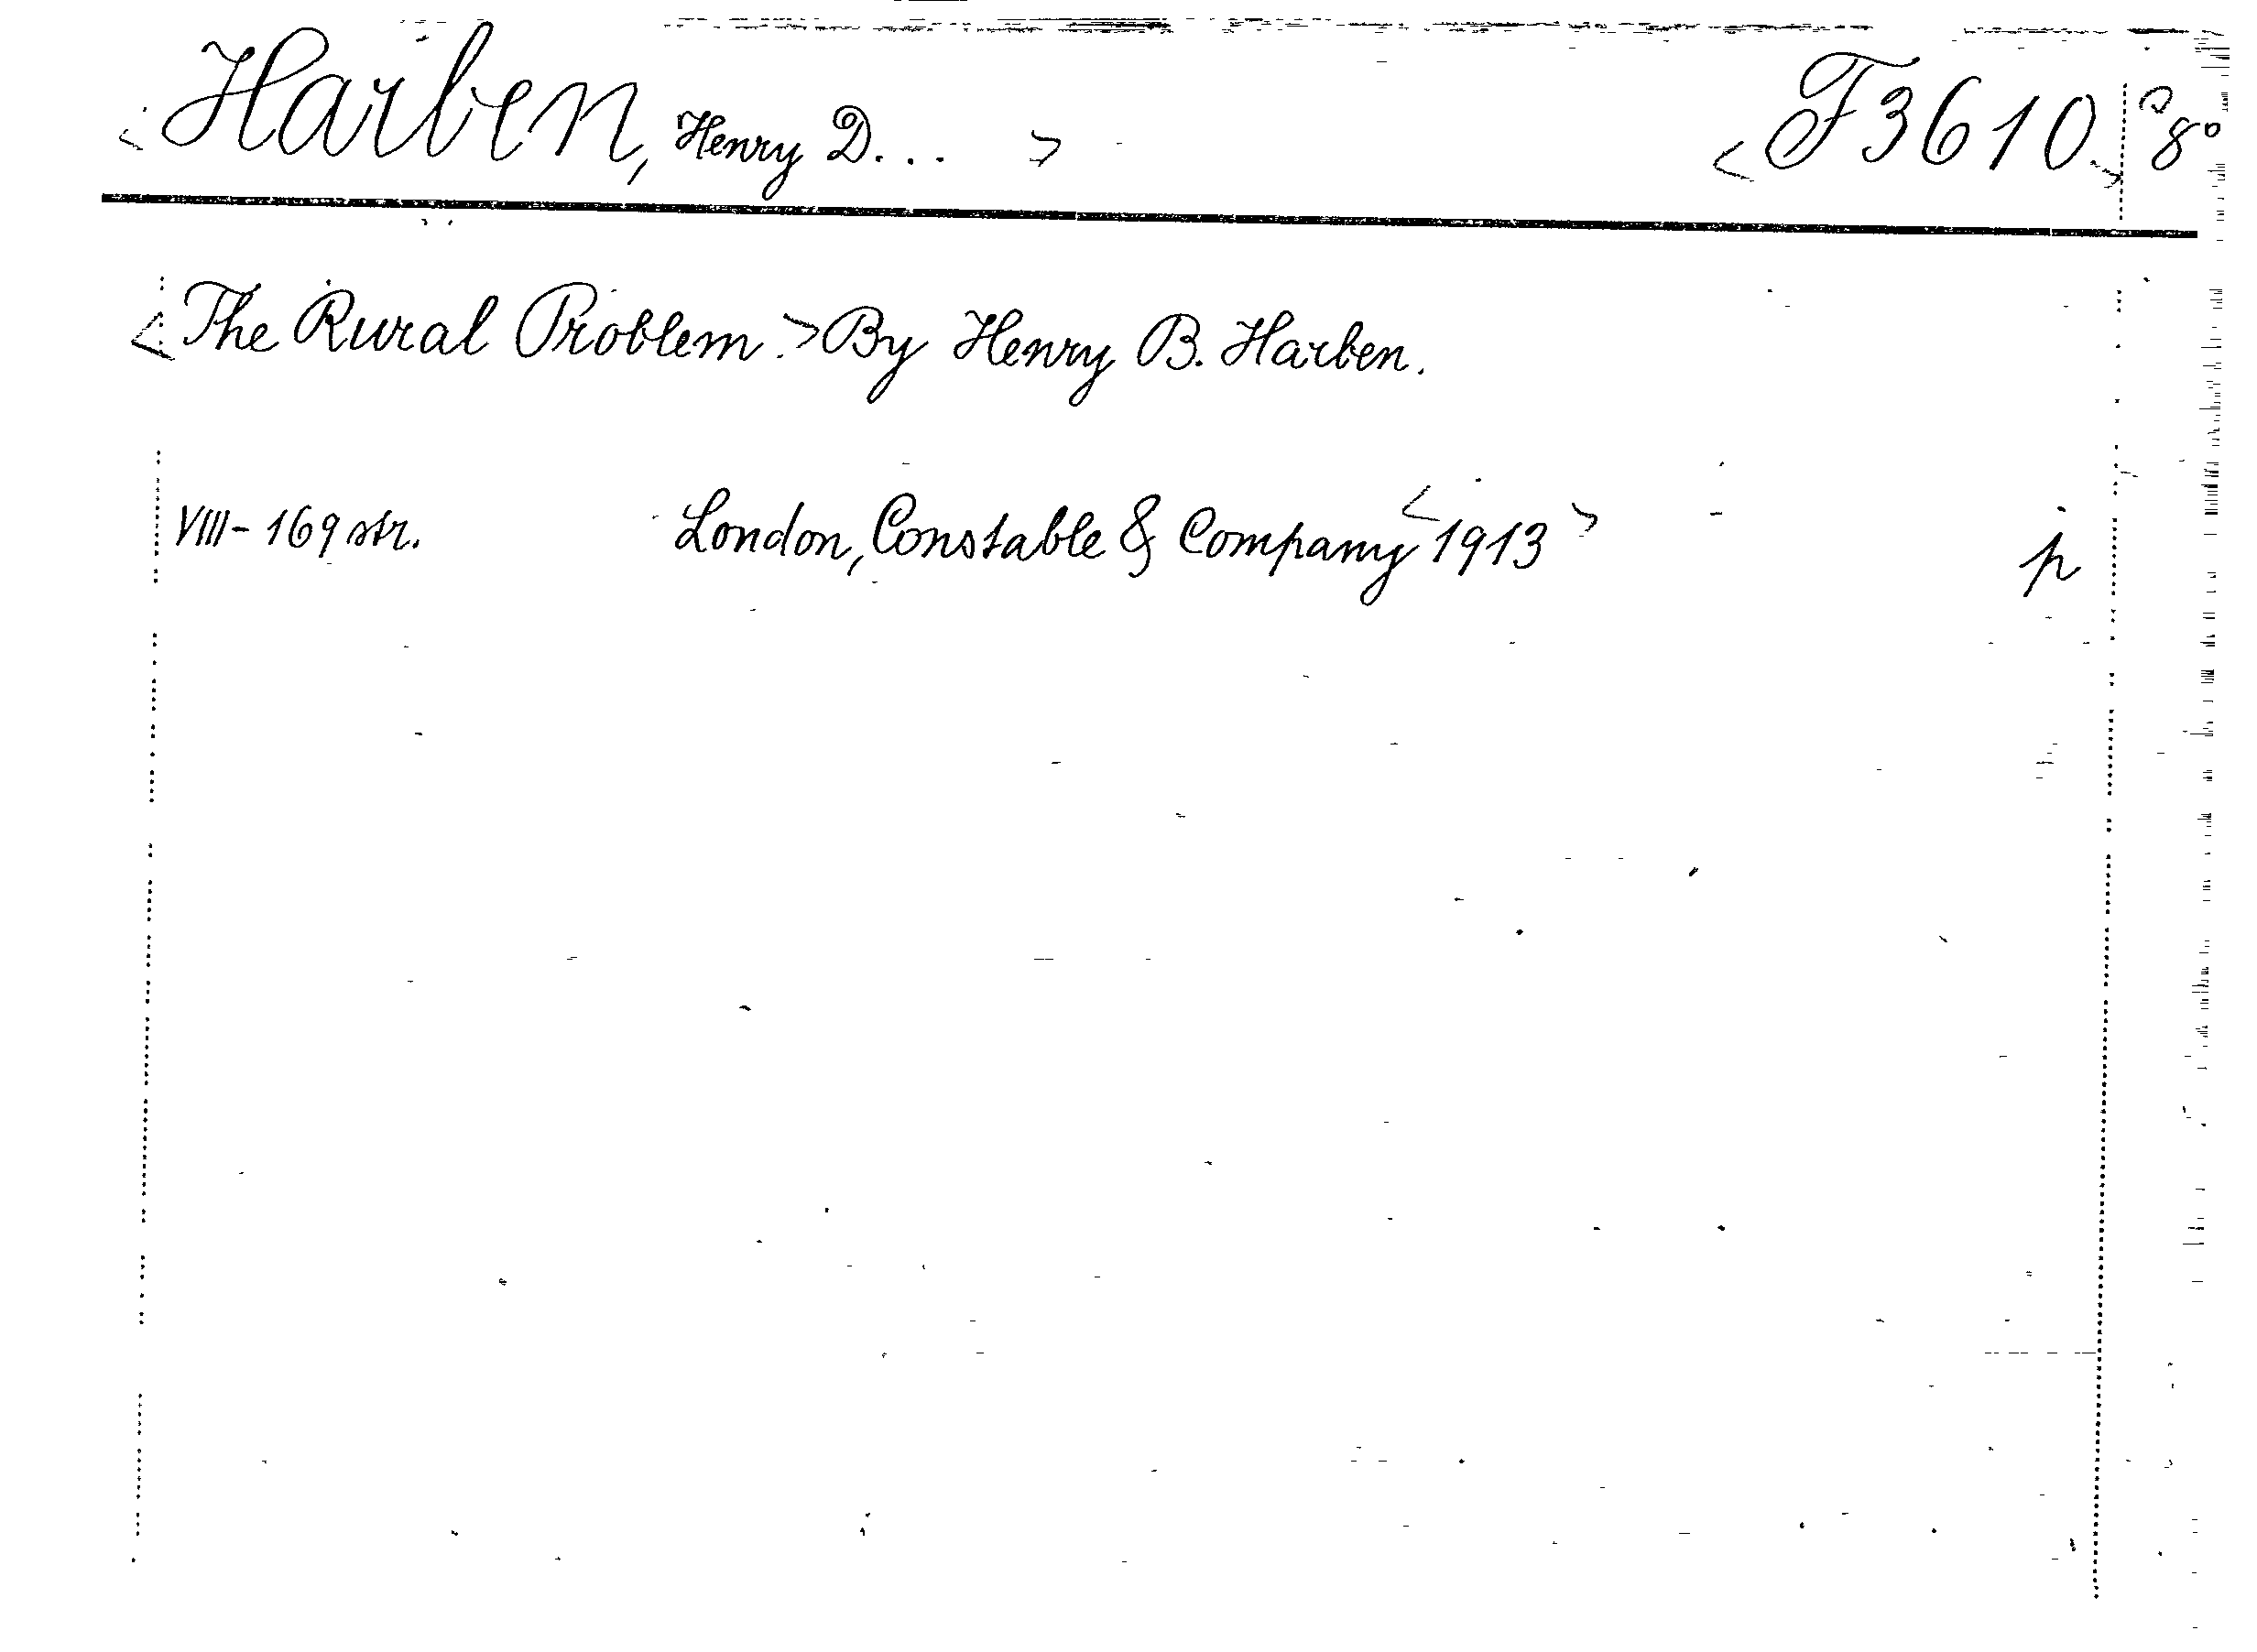 <Harben, Henry D... > <F3610.> 8°
<The Rural Problem.> By Henry B. Harben.
VIII - 169 str. London, Constable & Company <1913> p